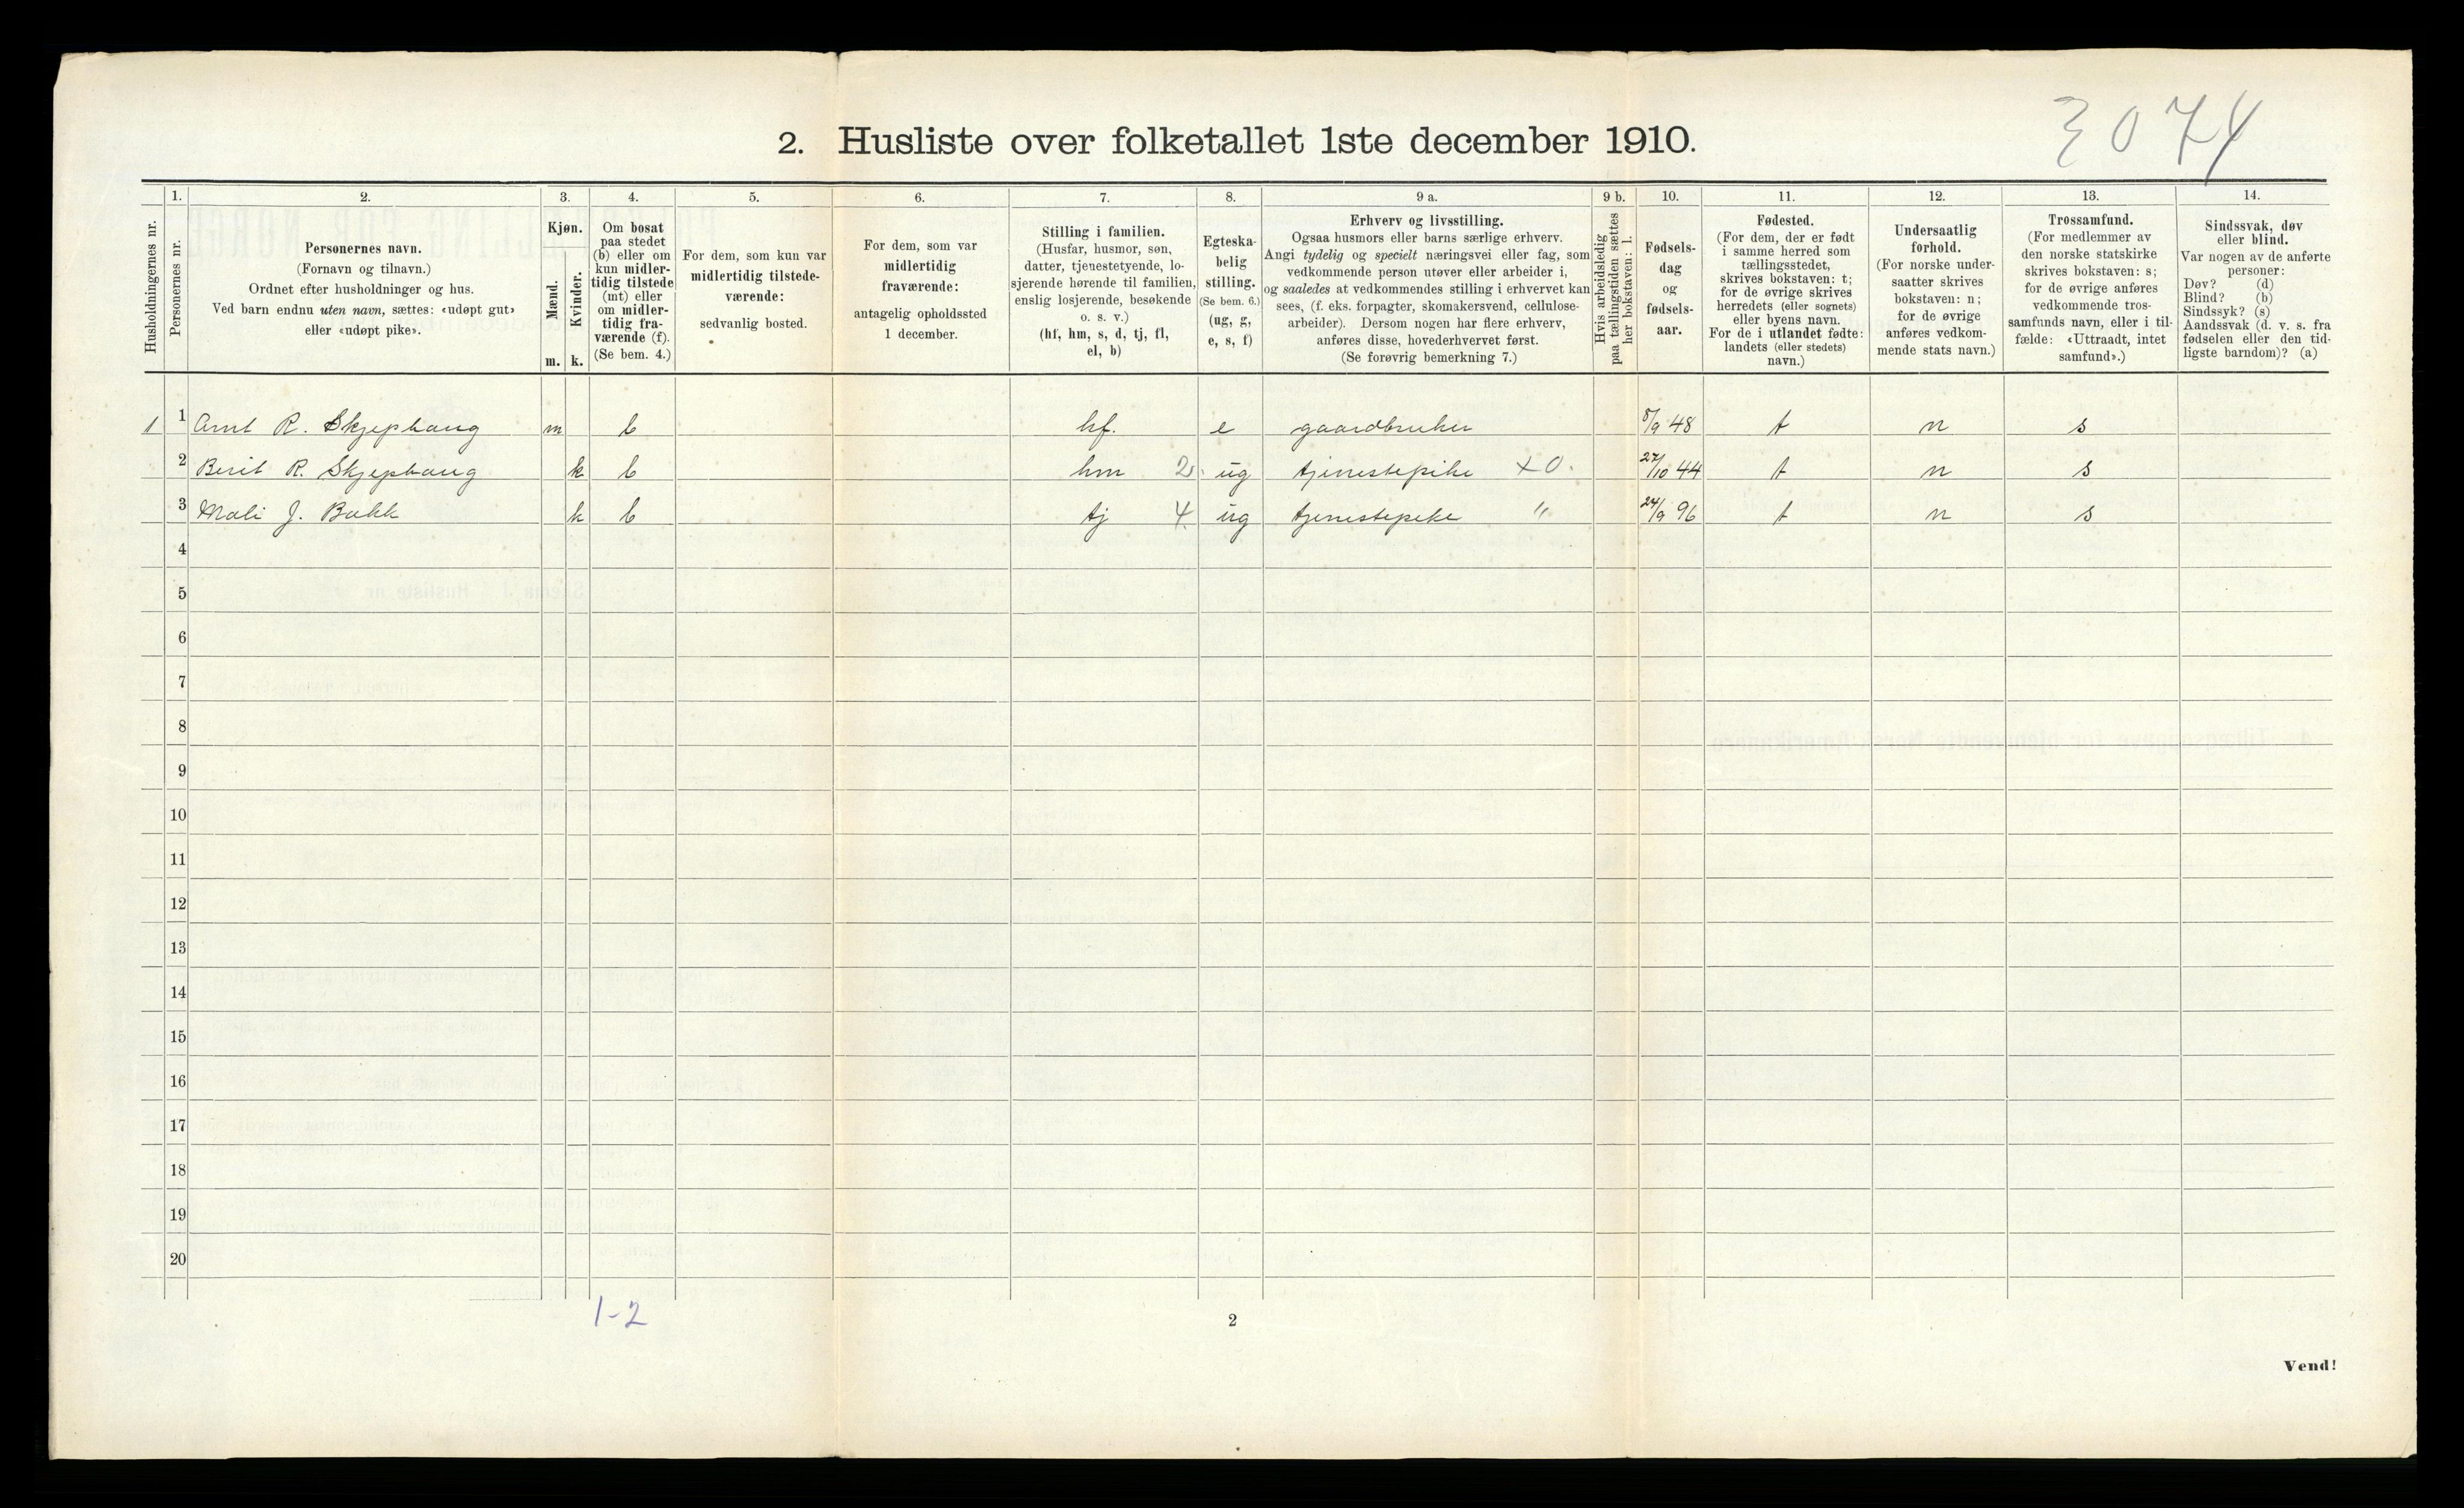 3074
2. Husliste over folketallet 1ste december 1910.
Husholdningernes nr.
1.
Personernes nr.
2.
Personernes navn.
(Fornavn og tilnavn.)
Ordnet efter husholdninger og hus.
Ved barn endnu uten navn, sættes: «udøpt gut»
eller «udøpt pike».
3.
Kjøn.
Mænd.
m.
Kvinder.
k.
4.
Om bosat
paa stedet
(b) eller om
kun midler-
tidig tilstede
(mt) eller
om midler-
tidig fra-
værende (f).
(Se bem. 4.)
5.
For dem, som kun var
midlertidig tilstede-
værende:
sedvanlig bosted.
6.
For dem, som var
midlertidig
fraværende:
antagelig opholdssted
1 december.
7.
Stilling i familien.
(Husfar, husmor, søn,
datter, tjenestetyende, lo-
sjerende hørende til familien,
enslig losjerende, besøkende
o. s. v.)
(hf, hm, s, d, tj, fl,
el, b)
8.
Egteska-
belig
stilling.
(Se bem. 6.)
(ug, g,
e, s, f)
9 a.
Erhverv og livsstilling.
Ogsaa husmors eller barns særlige erhverv.
Angi tydelig og specielt næringsvei eller fag, som
vedkommende person utøver eller arbeider i,
og saaledes at vedkommendes stilling i erhvervet kan
sees, (f. eks. forpagter, skomakersvend, cellulose-
arbeider). Dersom nogen har flere erhverv,
anføres disse, hovederhvervet først.
(Se forøvrig bemerkning 7.)
9 b.
Hvis arbeidsledig
paa tællingstiden sættes
her bokstaven: l.
10.
Fødsels-
dag
og
fødsels-
aar.
11.
Fødested.
(For dem, der er født
i samme herred som
tællingsstedet,
skrives bokstaven: t;
for de øvrige skrives
herredets (eller sognets)
eller byens navn.
For de i utlandet fødte:
landets (eller stedets)
navn.)
12.
Undersaatlig
forhold.
(For norske under-
saatter skrives
bokstaven: n;
for de øvrige
anføres vedkom-
mende stats navn.)
13.
Trossamfund.
(For medlemmer av
den norske statskirke
skrives bokstaven: s;
for de øvrige anføres
vedkommende tros-
samfunds navn, eller i til-
fælde: «Uttraadt, intet
samfund».)
14.
Sindssvak, døv
eller blind.
Var nogen av de anførte
personer:
Døv? (d)
Blind? (b)
Sindssyk? (s)
Aandssvak (d. v. s. fra
fødselen eller den tid-
ligste barndom)? (a)
1 1 Arnt R. Skjephaug m b hf. e gaardbruker 5/9 48 t n s
2 Berit R. Skjephaug k b hm 2. ug tjenestepike x0. 27/10 44 t n s
3 Mali J. Bakk k b tj 4. ug tjenestepike " 24/9 96 t n s
4
5
6
7
8
9
10
11
12
13
14
15
16
17
18
19
20
1-2
2
Vend!